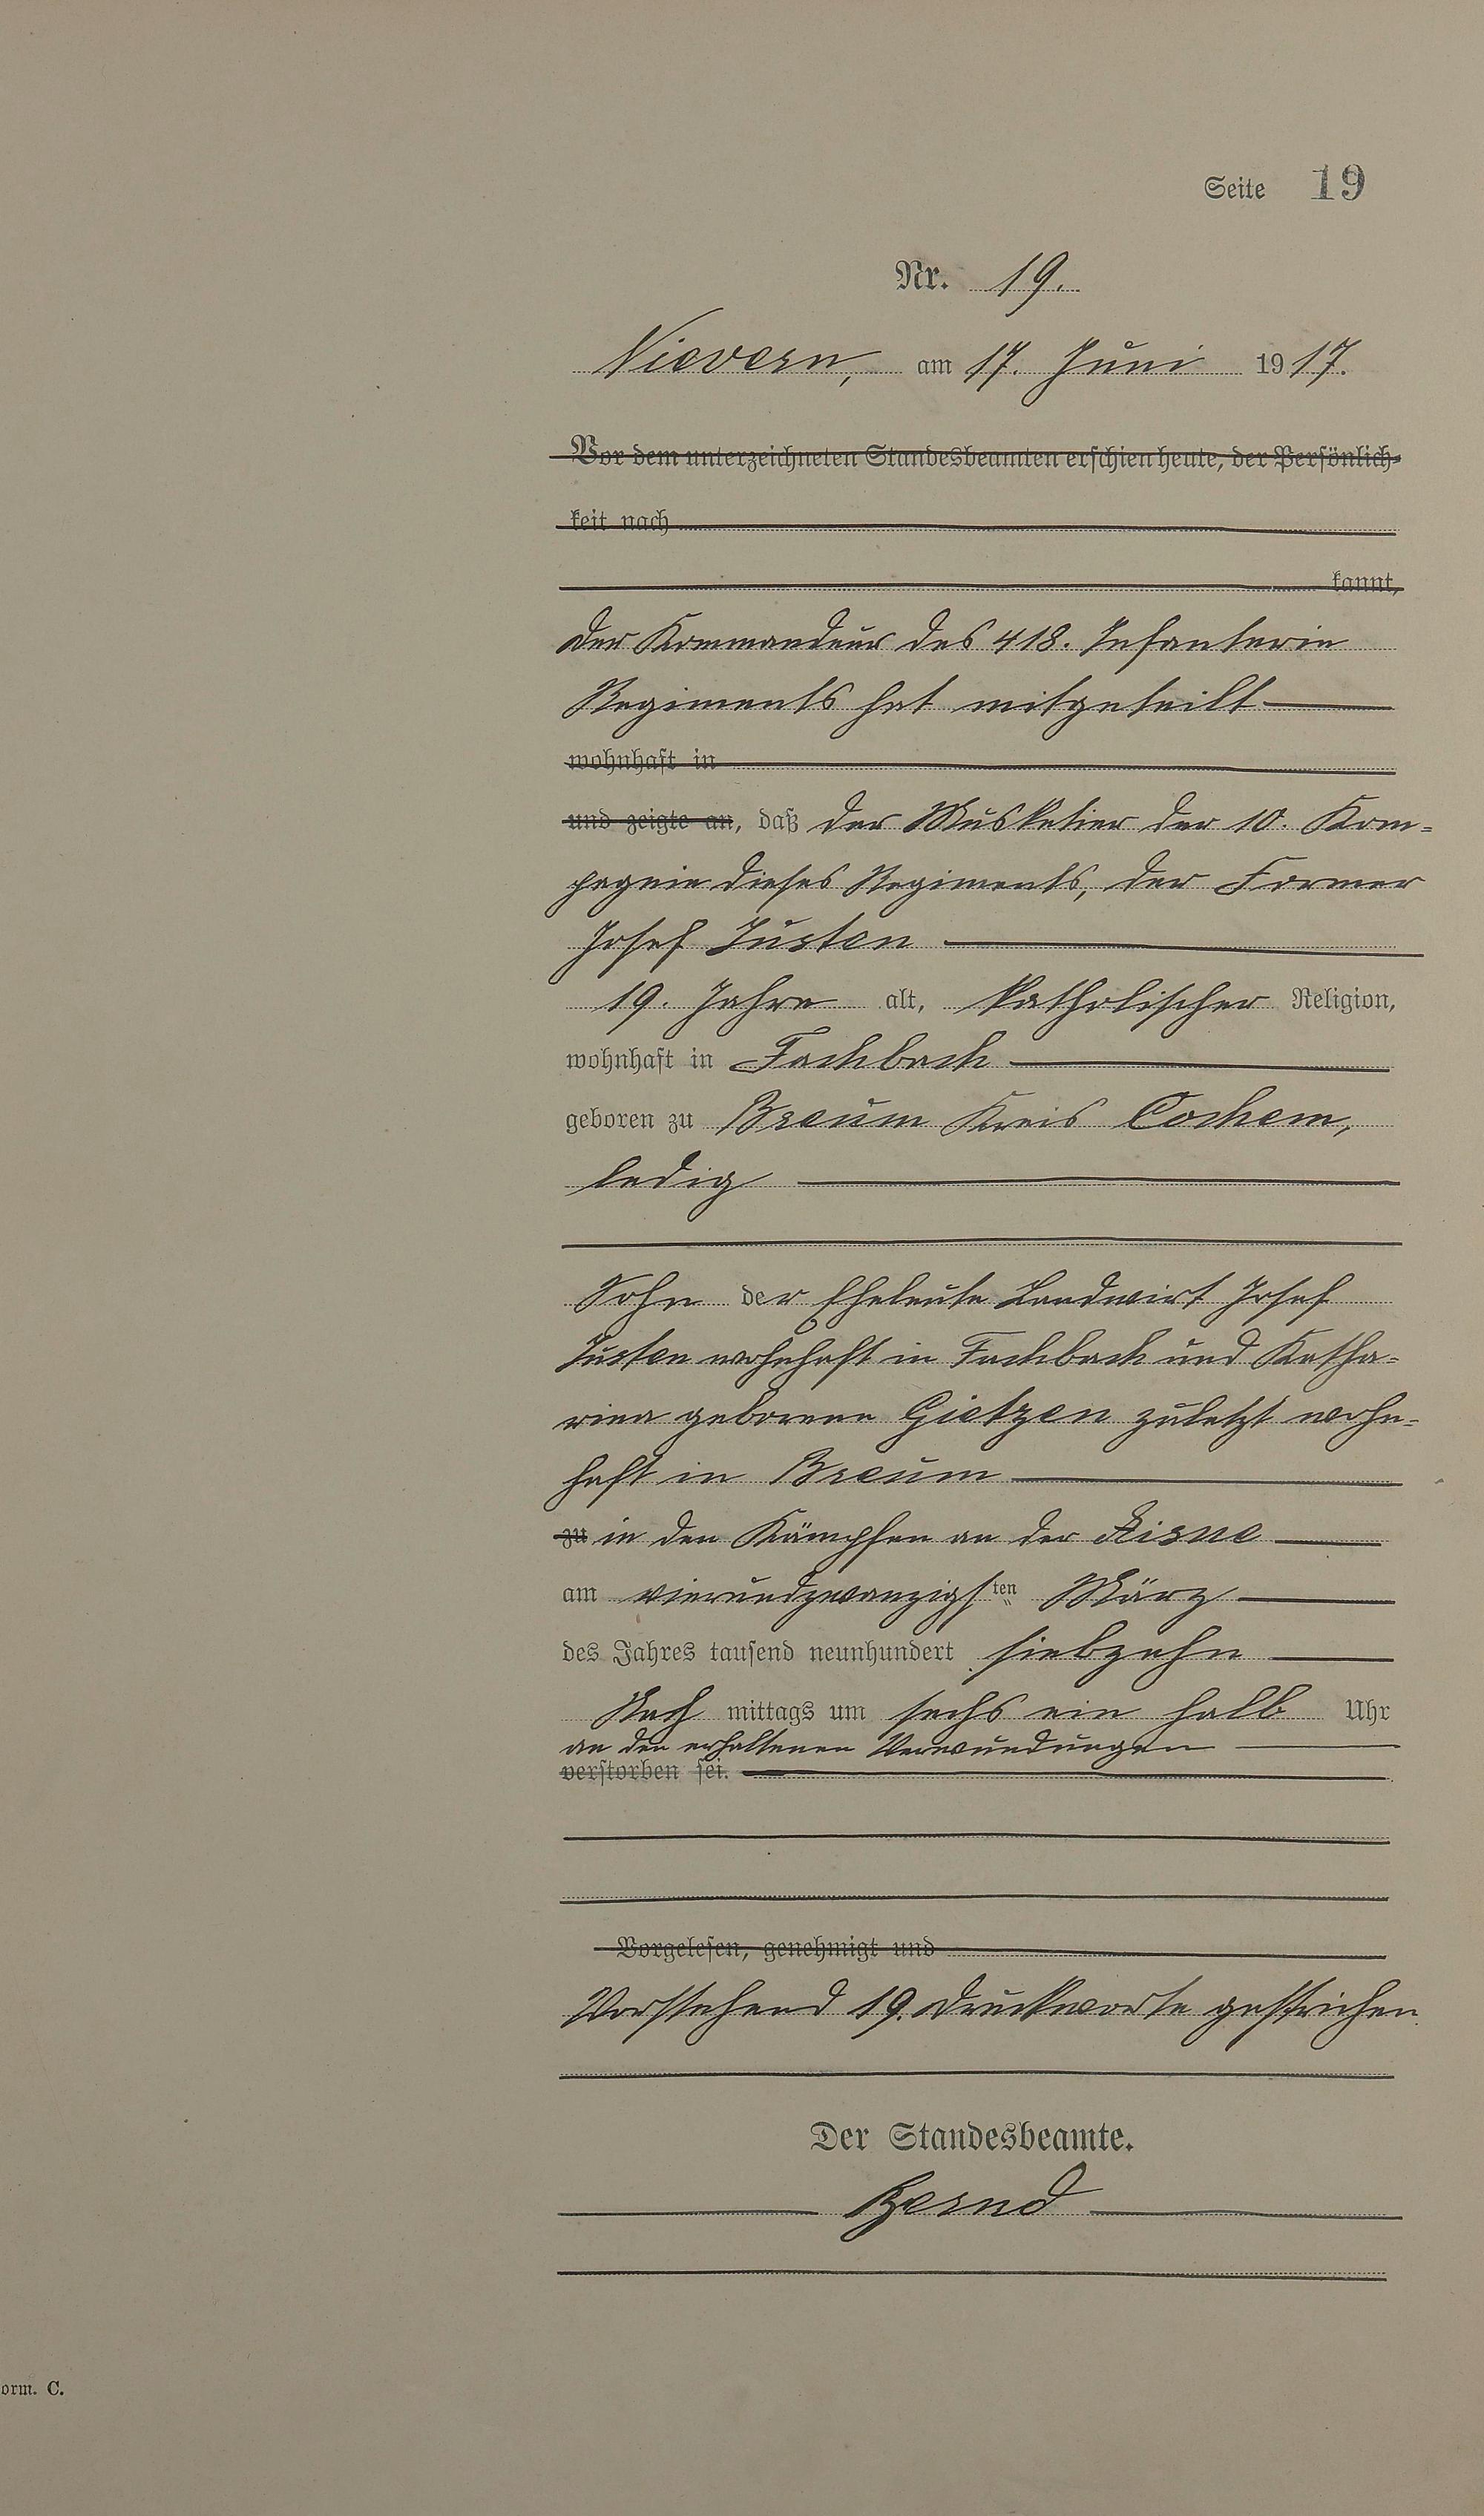 Seite 19
Nr. 19.
Nievern, am 17. Juni 1917.
Vor dem unterzeichneten Standesbeamten erschien heute, der Persönlich-
keit nach
kannt,
der Kommandeur des 418. Infanterie
Regiments hat mitgeteilt
wohnhaft in
und zeigte an, daß der Musketier der 10. Kom-
pagnie dieses Regiments, der Former
Josef Justen
19. Jahre alt, katholischer Religion,
wohnhaft in Fachbach
geboren zu Breum Kreis Cochem,
ledig
Sohn der Eheleute Landwirt Josef
Justen wohnhaft in Fachbach und Katha-
rina geborene Gietzen zuletzt wohn-
haft in Breum
zu in den Kämpfen an der Aisne
am vierundzwanzigsten März
des Jahres tausend neunhundert siebzehn
Nach mittags um sechs ein halb Uhr
an den erhaltenen Verwundungen
verstorben sei.
Vorgelesen, genehmigt und
Vorstehend 19. Druckworte gestrichen
Der Standesbeamte.
Bernd
orm. C.